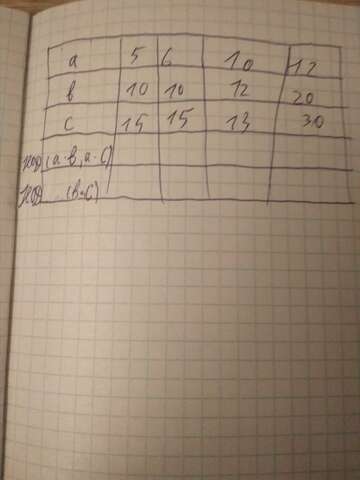 a 5 6 10 12
в 10 10 12 20
c 15 15 13 30
НОД (a·в, a·c)
НОД (в·c)